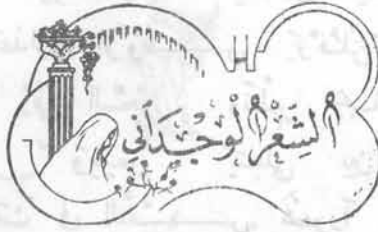 الشِعْرُ الْوِجْدَاني